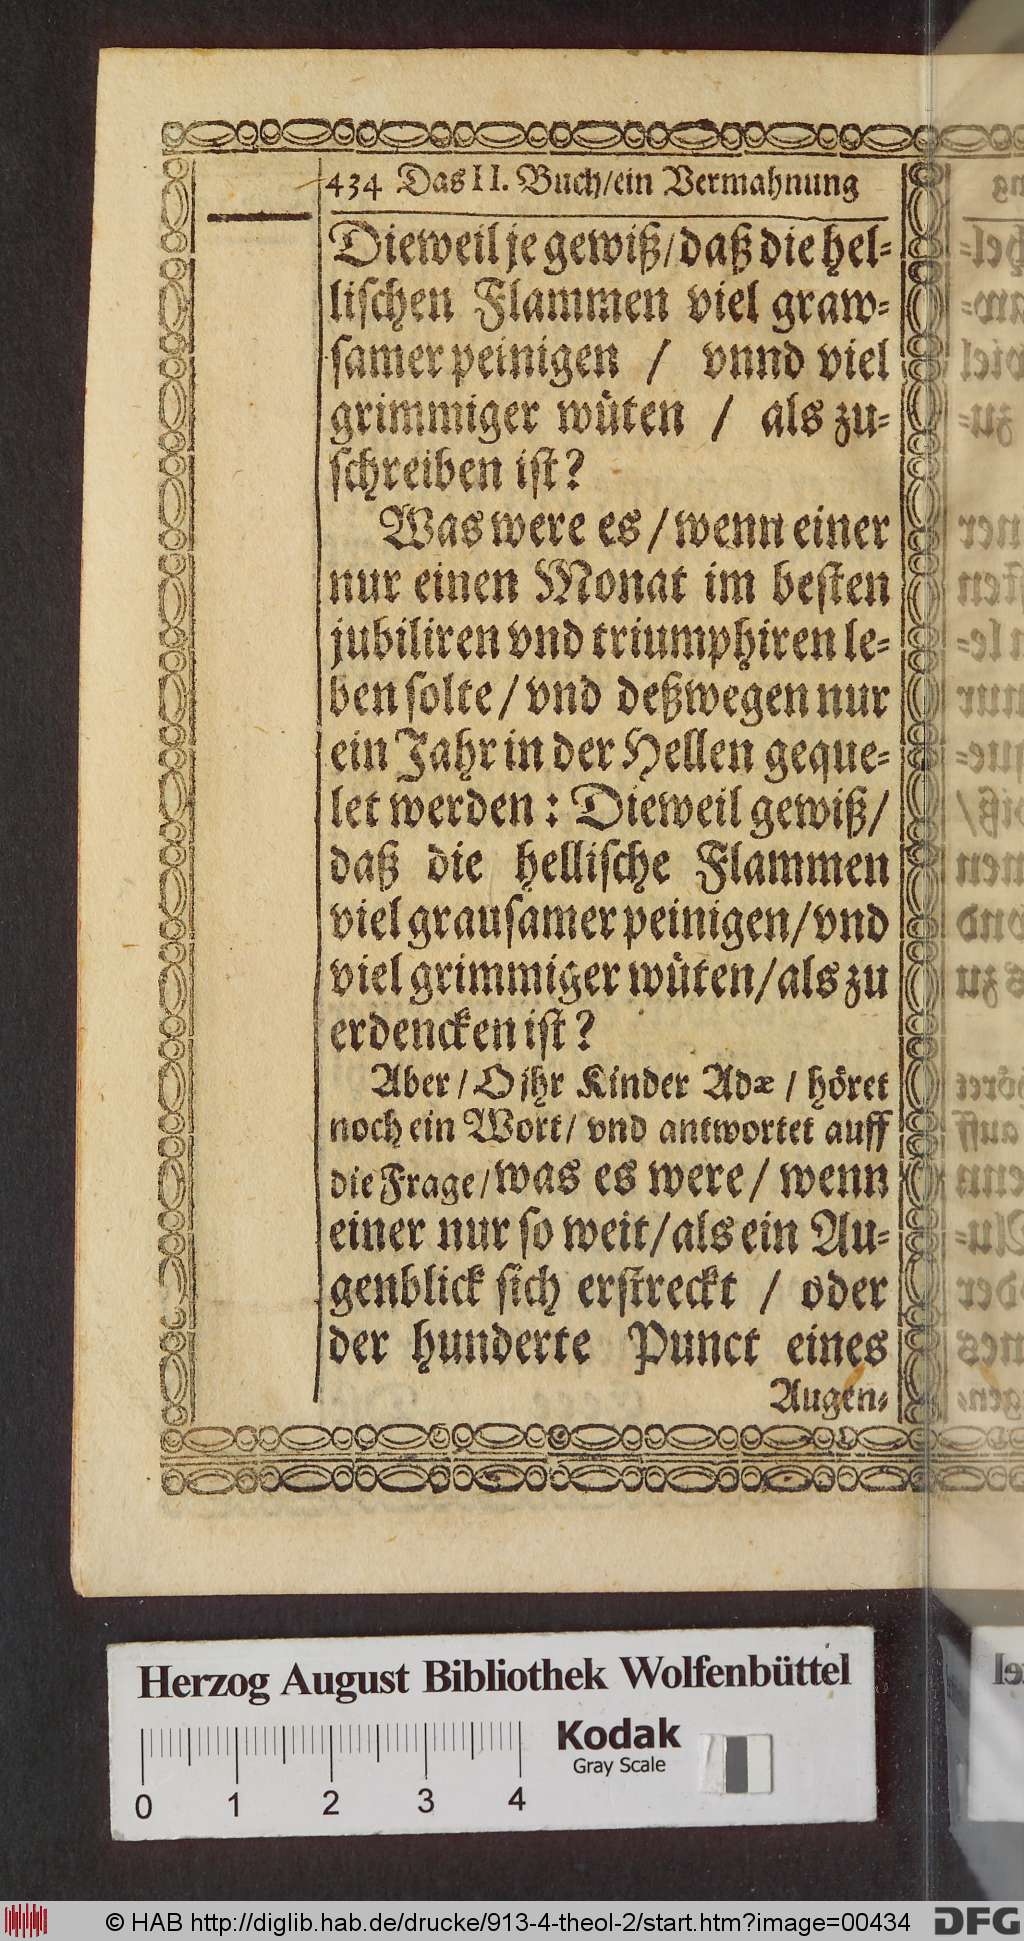 434 Das II. Buch/ein Vermahnung
Dieweil je gewiß/daß die hel-
lischen Flammen viel graw-
samer peinigen / vnnd viel
grimmiger wüten / als zu-
schreiben ist?
Was were es/wenn einer
nur einen Monat im besten
jubiliren vnd triumphiren le-
ben solte/vnd deßwegen nur
ein Jahr in der Hellen geque-
let werden: Dieweil gewiß/
daß die hellische Flammen
viel grausamer peinigen/vnd
viel grimmiger wüten/als zu
erdencken ist?
Aber/O jhr Kinder Adæ/höret
noch ein Wort/ vnd antwortet auff
die Frage/was es were/wenn
einer nur so weit/als ein Au-
genblick sich erstreckt / oder
der hunderte Punct eines
Augen-
Herzog August Bibliothek Wolfenbüttel
Kodak
Gray Scale
0 1 2 3 4
© HAB http://diglib.hab.de/drucke/913-4-theol-2/start.htm?image=00434
DFG